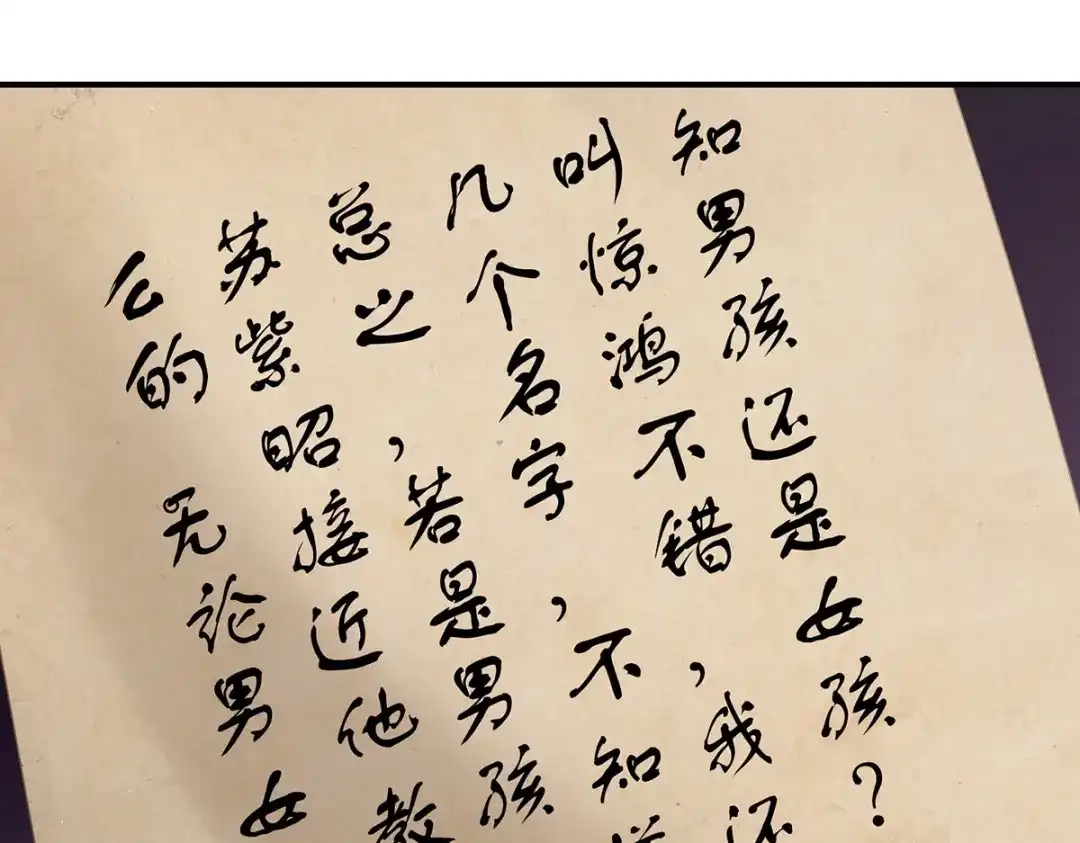 知男孩还是女孩？
叫惊鸿不错，我还
几个名字，不知
总之，若是男孩
苏紫昭接近他教
么的 无论男女